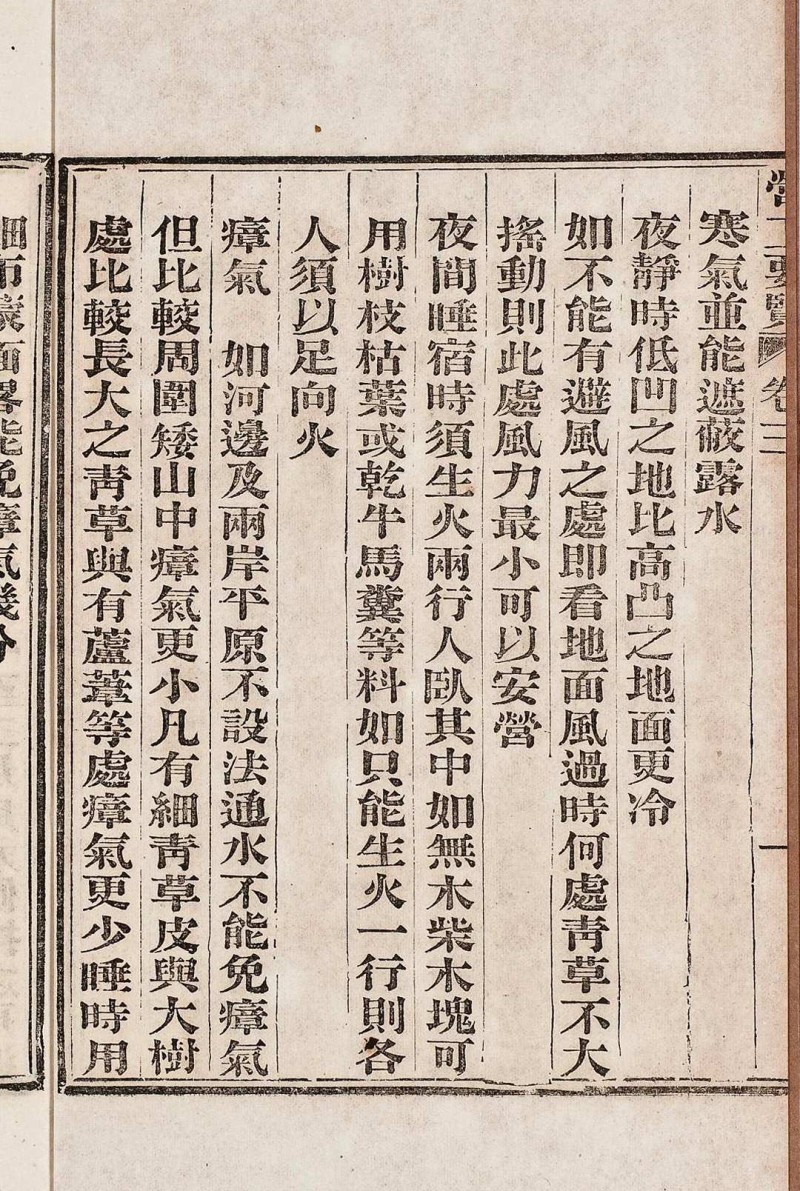 營工要覽 卷三 一
寒氣並能遮蔽露水
夜靜時低凹之地比高凸之地面更冷
如不能有避風之處即看地面風過時何處青草不大
搖動則此處風力最小可以安營
夜間睡宿時須生火兩行人臥其中如無木柴木塊可
用樹枝枯葉或乾牛馬糞等料如只能生火一行則各
人須以足向火
瘴氣　如河邊及兩岸平原不設法通水不能免瘴氣
但比較周圍矮山中瘴氣更小凡有細青草皮與大樹
處比較長大之青草與有蘆葦等處瘴氣更少睡時用
細布幾面畧能免瘴氣幾分